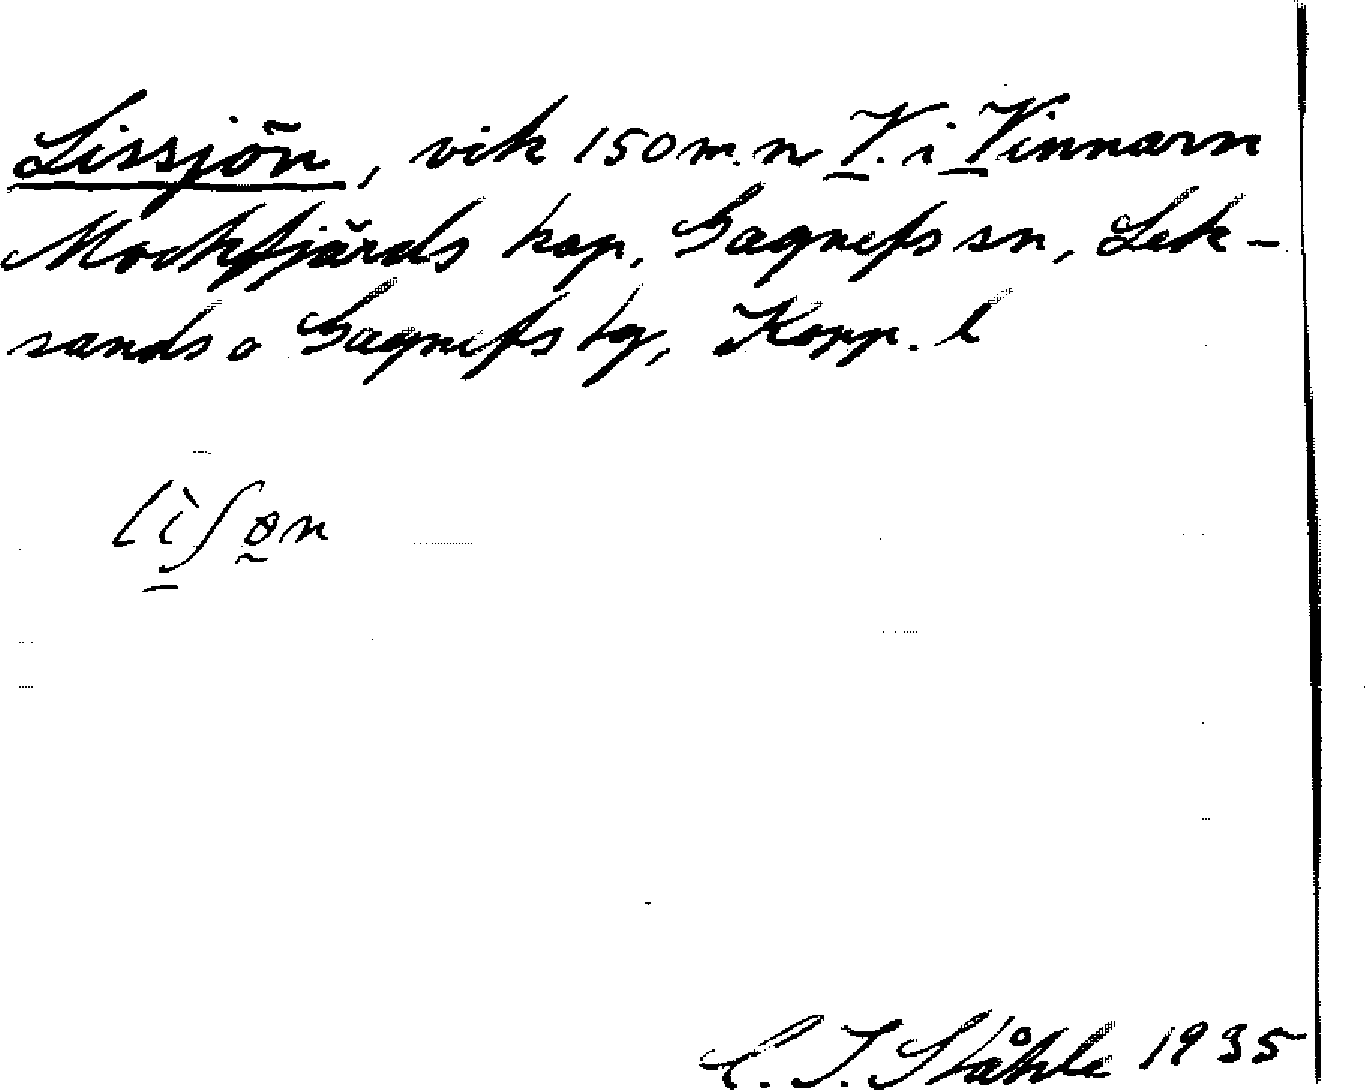 Lissjön, vik 150 m. n V. i Vinnarn
Mockfjärds kap, Gagnefs sn, Lek-
sands o Gagnefs tg, Kopp. l
lìʃøn
C. I. Ståhle 1935